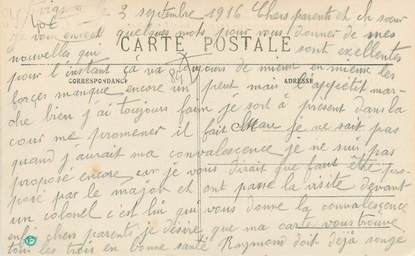 2 septembre 1916 Chers parents et ch sœur
Je vous envoies quelques mots pour vous donner de mes
nouvelles qui sont exellentes
CARTE POSTALE
pour l'instant ça va toujours de mieux en mieux les
CORRESPONDANCE ADRESSE
forçes manque encore un peut mais l'appétit mar-
che bien j'ai toujours faim je sort à présent dans la
cour me promener il fait beau je ne sait pas
quand j'aurait ma convalescence je ne suis pas
proposé encore car je vous dirait que faut être pro-
posé par le major et ont passe la visite devant
un colonel c'est lui qui vous donne la convalescence
enfin chers parents je désire que ma carte vous trouve
tous les trois en bonne santé Raymond doit déjà songé